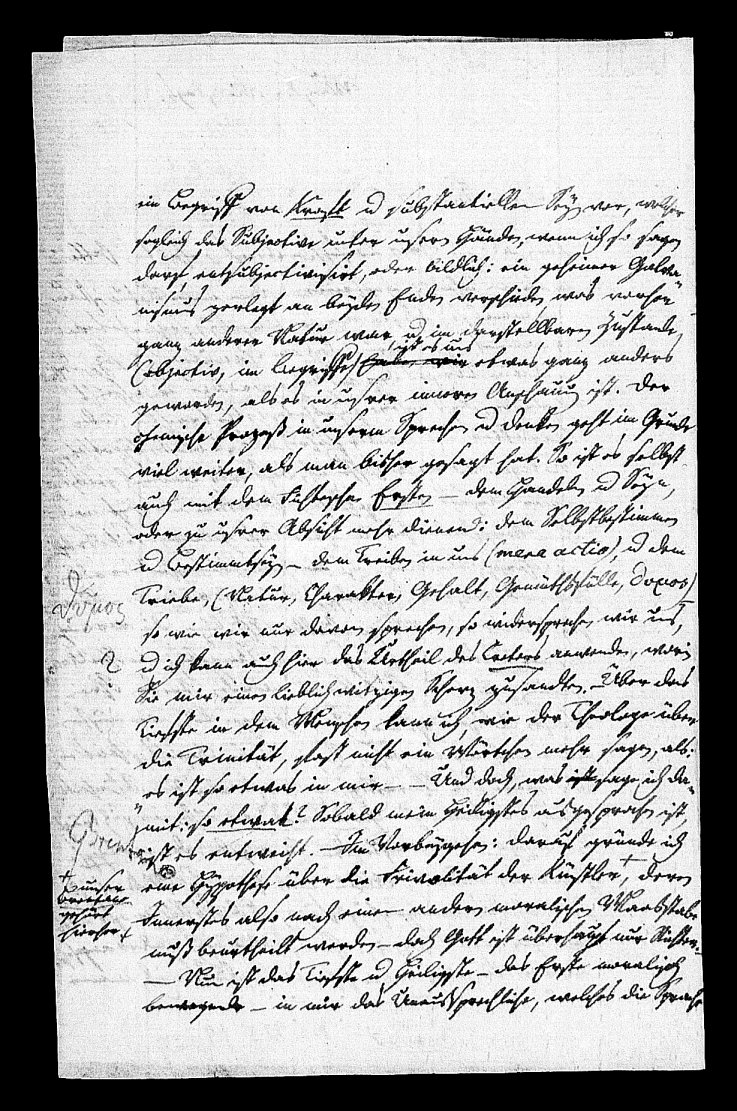 ein Begriff von Kraft u substantiellen Seyn vor, welcher
sogleich das Subjective unter unsern Händen, wenn ich so sagen
darf, entsubjectivisirt, oder bildlich: ein geheimer Galva-
nismus zerlegt an beyden Enden was vorher
ganz anderer Natur war, u im darstellbaren Zustande
ist es uns
(objectiv, im Begriffe) etwas ganz anders
geworden, als es in unsrer innern Anschauung ist. Der
chemische Prozeß in unserm Sprechen u denken geht im Grunde
viel weiter, als man bisher gesagt hat. So ist es selbst
auch mit dem Fichteschen Ersten – dem Handeln u Seyn,
oder zu unsrer Absicht mehr dienend: dem Selbstbestimmen
u Bestimmtseyn – dem Treiben in uns (mera actio), u dem
Triebe, (Natur, Charakter, Gehalt, Gemüthsfülle,
so wie wir nur davon sprechen, so widersprechen wir uns,
u ich kann auch hier das Urtheil des anwenden, worin
Sie mir einen lieblich witzigen Scherz zusandten. Über das
Tiefste in dem Menschen kann ich, wie der Theologe über
die Trinität, fast nicht ein Wörtchen mehr sagen, als:
es ist so etwas in mir – – Und doch, was sage ich da-
mit: so etwas? Sobald mein Heiligstes ausgesprochen ist,
ist es entweiht. – Im Vorbeygehen: darauf gründe ich
eine Hypothese über die Frivolität der Künstler+, deren
Innerstes also nach einem andern moralischen Maasstabe
muß beurtheilt werden – doch Gott ist überhaupt nur Richter. –
– Nun ist das Tiefste u Heiligste – das Erste moralisch
bewegende – in mir das Unaussprechliche, welches die Sprache
+ unser
Brentano
gehört
hierher